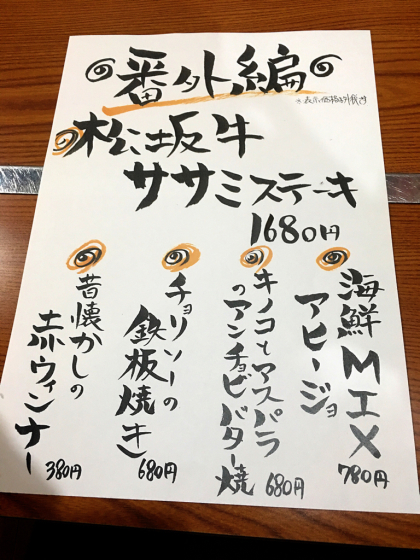 番外編
※表示価格は外税です
松坂牛
ササミステーキ
1680円
海鮮MIX
アヒージョ
780円
キノコとアスパラ
のアンチョビバター焼
680円
チョリソーの
鉄板焼き
680円
昔懐かしの
赤ウィンナー
380円